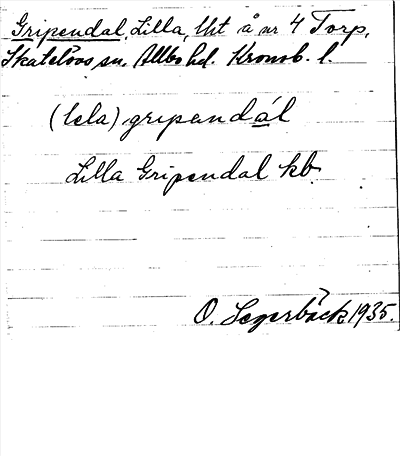 Gripendal, Lilla, lht å nr 4 Torp,
Skatelövs sn, Allbo hd. Kronob. l.
(lela) gripandál
Lilla Gripendal kb
O. Segerbäck 1935.